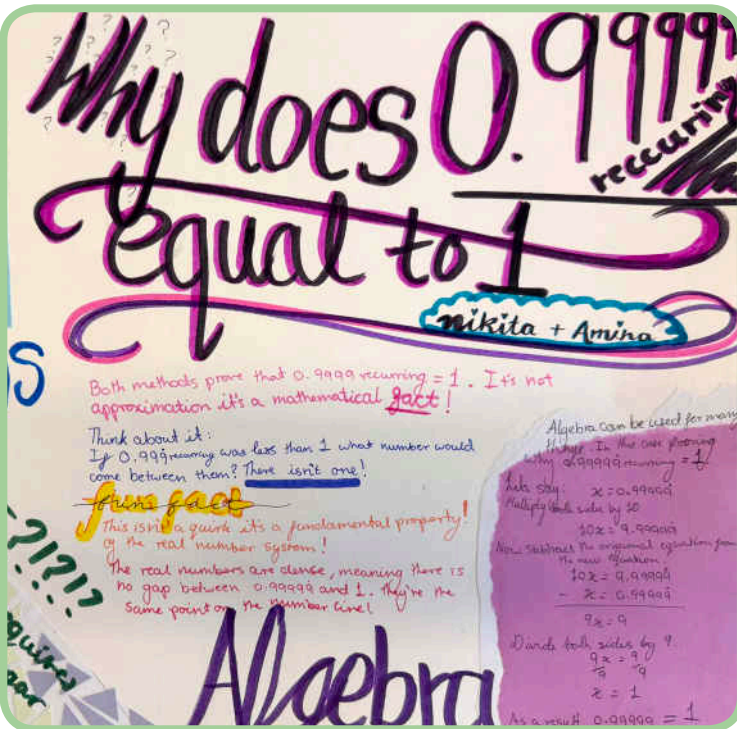 Why does 0.99999
reccuring
equal to 1
nikita + Amina
Both methods prove that 0.9999 recurring = 1. It's not
approximation it's a mathematical fact!
Think about it:
If 0.999̇ recurring was less than 1 what number would
come between them? There isn't one!
fun fact
This isn't a quirk it's a fundamental property!
of the real number system!
The real numbers are dense, meaning there is
no gap between 0.99999̇ and 1. They're the
same point on the number line!
?!?!?
Algebra
Algebra can be used for many
things. In this case prooving
why 0.99999̇ recurring = 1.
Lets say: x = 0.99999̇
Multiply both sides by 10
10x = 9.99999̇
Now subtract the original equation from
the new equation.
10x = 9.99999̇
- x = 0.99999̇
9x = 9
Divide both sides by 9.
9x = 9
/9 /9
x = 1
As a result 0.99999 = 1